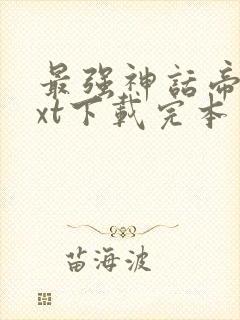 最强神話帝
xt下載完本
苗海波